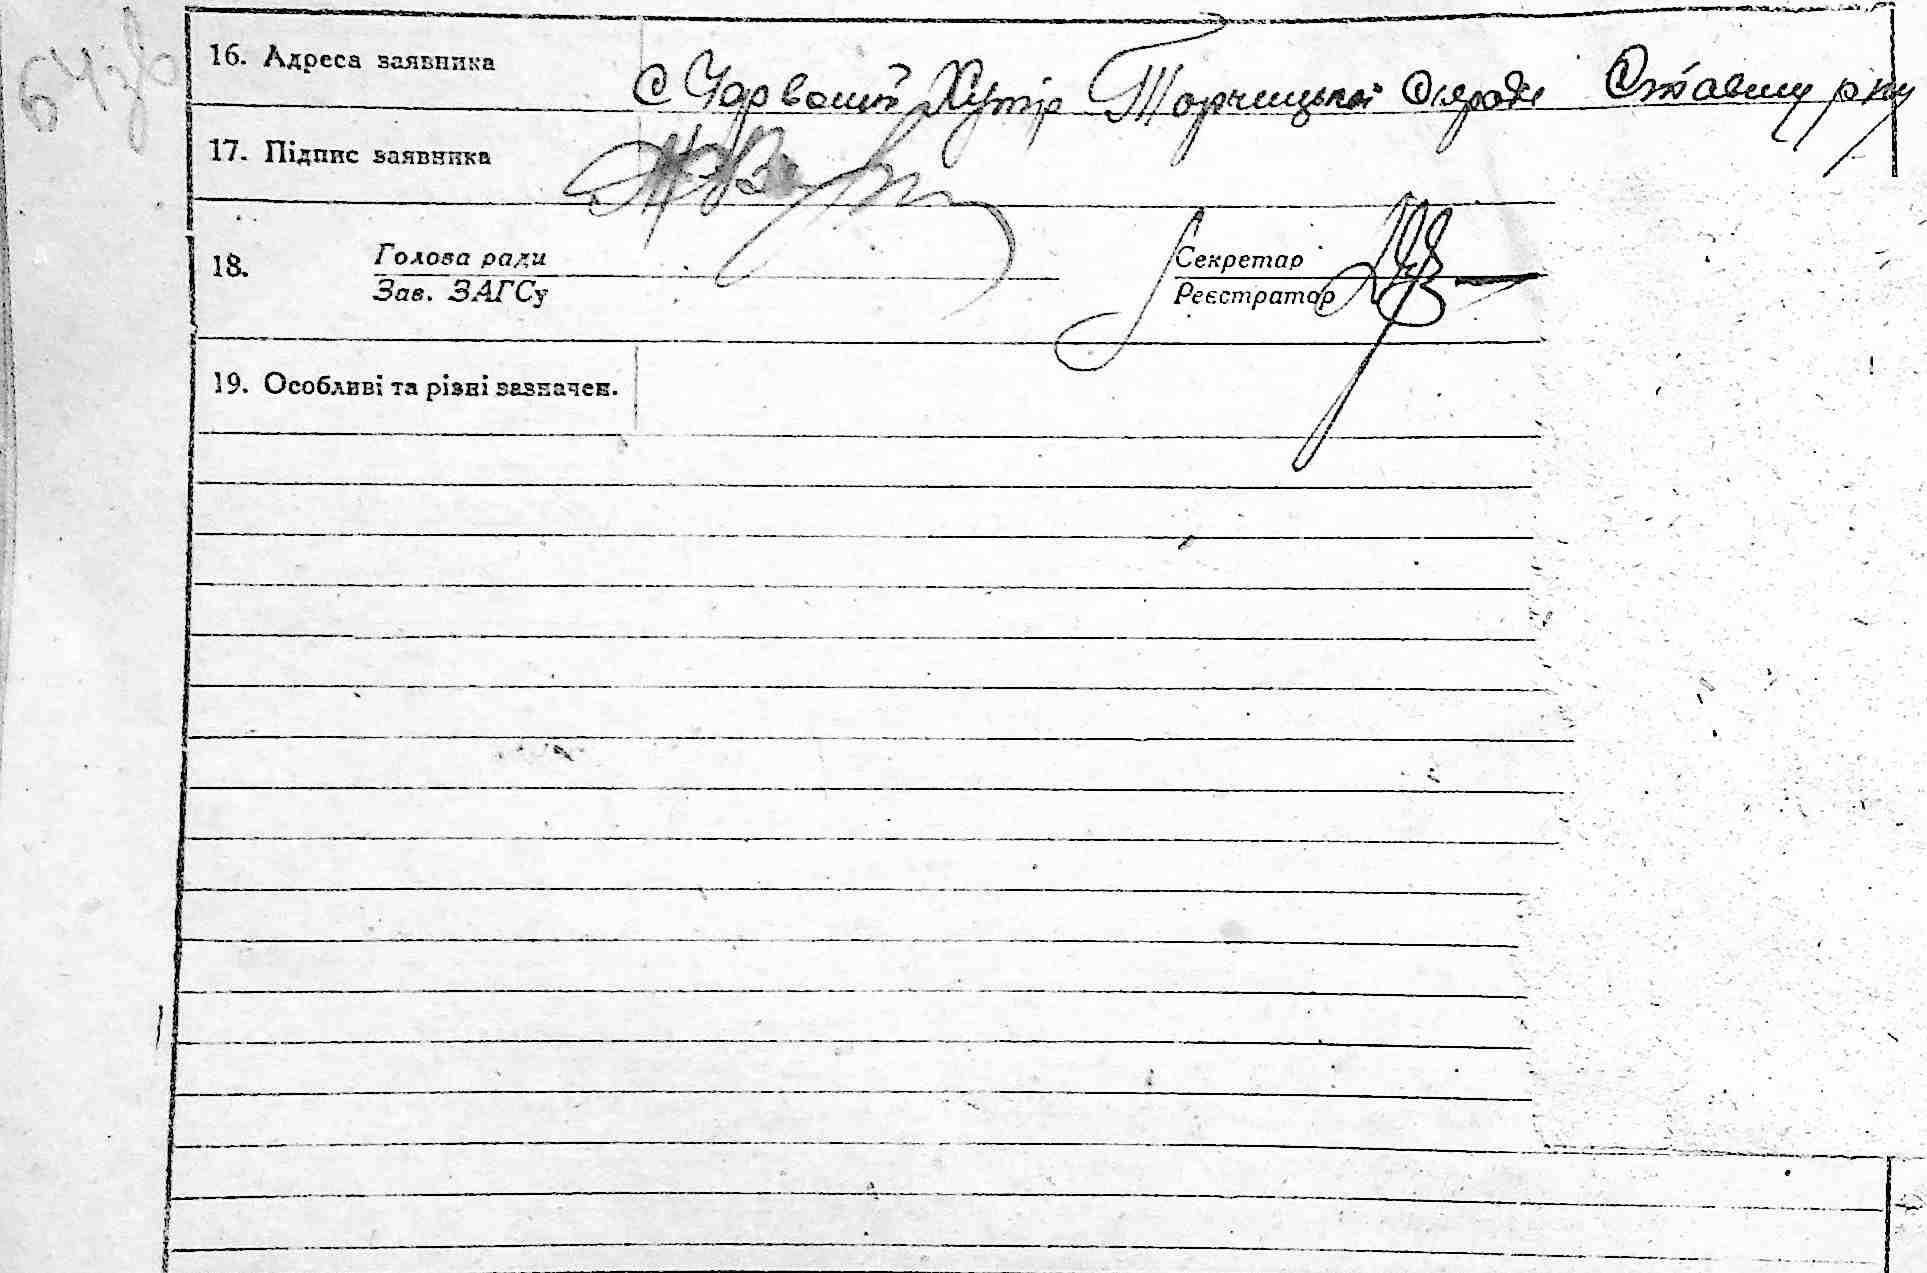 64зв
16. Адреса заявника с Червоний Хутір Торчицької с/ради Ставищ р ну
17. Підпис заявника
18. Голова ради Секретар
Зав. ЗАГСу Реєстратор
19. Особливі та різні зазначен.